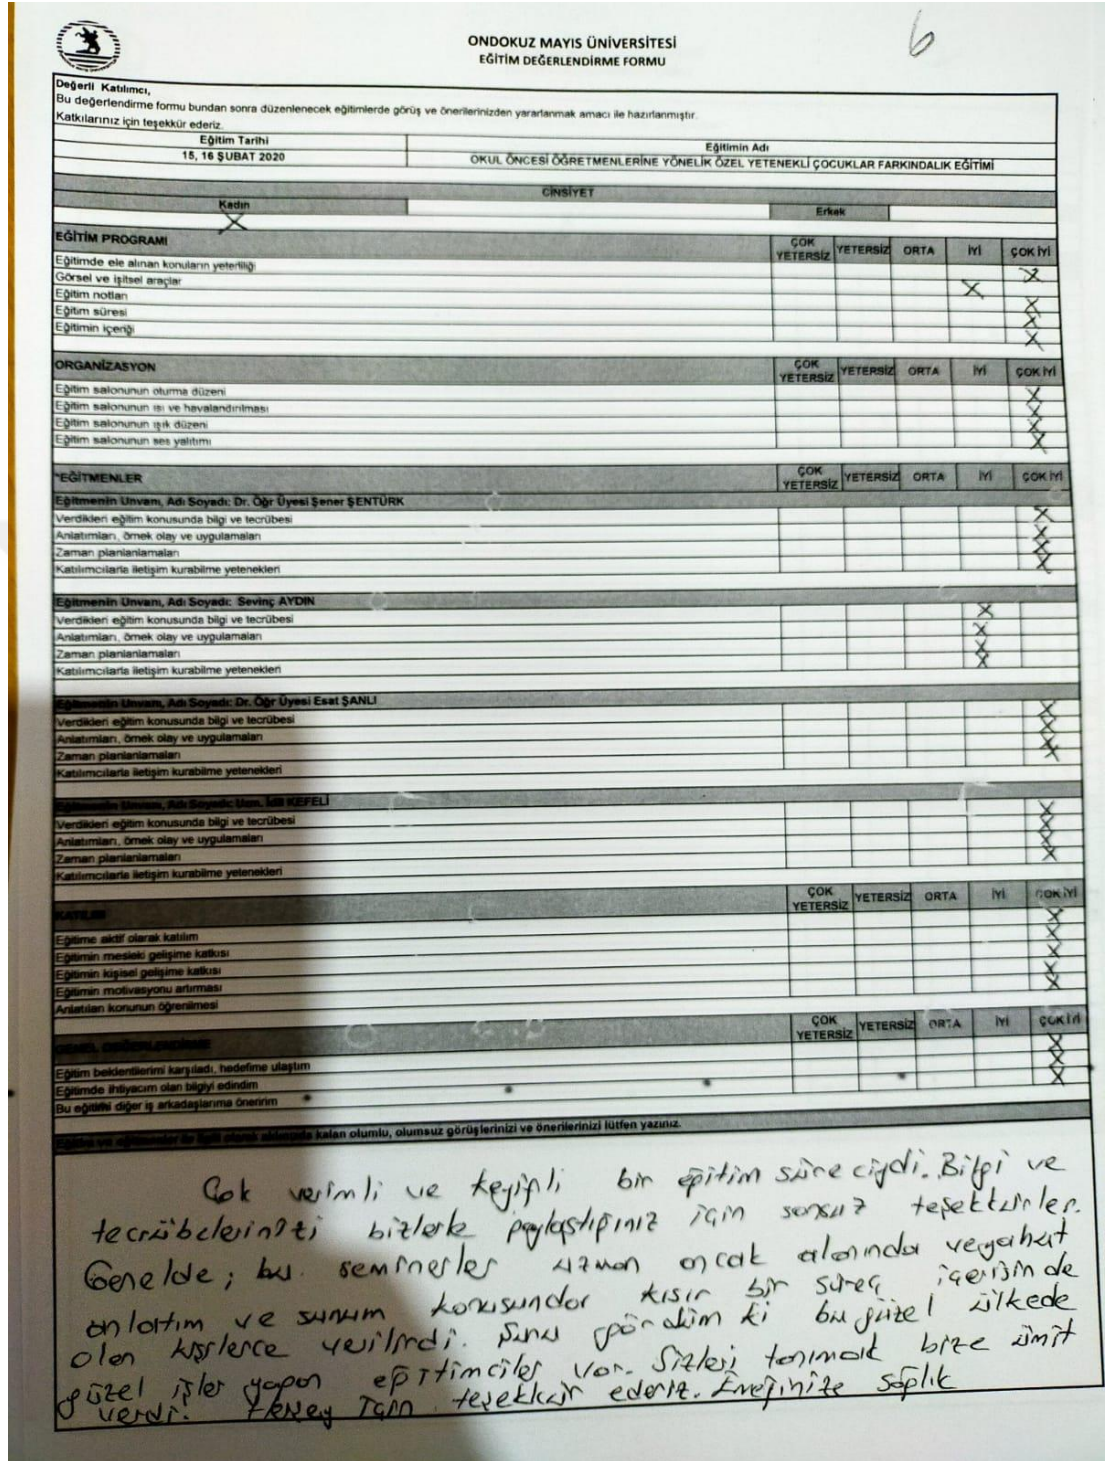 6
ONDOKUZ MAYIS ÜNİVERSİTESİ
EĞİTİM DEĞERLENDİRME FORMU
Değerli Katılımcı,
Bu değerlendirme formu bundan sonra düzenlenecek eğitimlerde görüş ve önerilerinizden yararlanmak amacı ile hazırlanmıştır.
Katkılarınız için teşekkür ederiz.
Eğitim Tarihi Eğitimin Adı
15, 16 ŞUBAT 2020 OKUL ÖNCESİ ÖĞRETMENLERİNE YÖNELİK ÖZEL YETENEKLİ ÇOCUKLAR FARKINDALIK EĞİTİMİ
CİNSİYET
Kadın X Erkek
EĞİTİM PROGRAMI ÇOK YETERSİZ YETERSİZ ORTA İYİ ÇOK İYİ
Eğitimde ele alınan konuların yeterliliği X
Görsel ve işitsel araçlar X
Eğitim notları X
Eğitim süresi X
Eğitimin içeriği X
ORGANİZASYON ÇOK YETERSİZ YETERSİZ ORTA İYİ ÇOK İYİ
Eğitim salonunun oturma düzeni X
Eğitim salonunun ısı ve havalandırılması X
Eğitim salonunun ışık düzeni X
Eğitim salonunun ses yalıtımı X
"EĞİTMENLER ÇOK YETERSİZ YETERSİZ ORTA İYİ ÇOK İYİ
Eğitmenin Unvanı, Adı Soyadı: Dr. Öğr Üyesi Şener ŞENTÜRK
Verdikleri eğitim konusunda bilgi ve tecrübesi X
Anlatımları, örnek olay ve uygulamaları X
Zaman planlanlamaları X
Katılımcılarla iletişim kurabilme yetenekleri X
Eğitmenin Unvanı, Adı Soyadı: Sevinç AYDIN
Verdikleri eğitim konusunda bilgi ve tecrübesi X
Anlatımları, örnek olay ve uygulamaları X
Zaman planlanlamaları X
Katılımcılarla iletişim kurabilme yetenekleri X
Eğitmenin Unvanı, Adı Soyadı: Dr. Öğr Üyesi Esat ŞANLI
Verdikleri eğitim konusunda bilgi ve tecrübesi X
Anlatımları, örnek olay ve uygulamaları X
Zaman planlanlamaları X
Katılımcılarla iletişim kurabilme yetenekleri X
Eğitmenin Unvanı, Adı Soyadı: Uzm. İdil KEFELİ
Verdikleri eğitim konusunda bilgi ve tecrübesi X
Anlatımları, örnek olay ve uygulamaları X
Zaman planlanlamaları X
Katılımcılarla iletişim kurabilme yetenekleri X
KATILIM ÇOK YETERSİZ YETERSİZ ORTA İYİ ÇOK İYİ
Eğitime aktif olarak katılım X
Eğitimin mesleki gelişime katkısı X
Eğitimin kişisel gelişime katkısı X
Eğitimin motivasyonu artırması X
Anlatılan konunun öğrenilmesi X
GENEL DEĞERLENDİRME ÇOK YETERSİZ YETERSİZ ORTA İYİ ÇOK İYİ
Eğitim beklentilerimi karşıladı, hedefime ulaştım X
Eğitimde ihtiyacım olan bilgiyi edindim X
Bu eğitimi diğer iş arkadaşlarıma öneririm X
Eğitim ve eğitmenler ile ilgili olarak aklınızda kalan olumlu, olumsuz görüşlerinizi ve önerilerinizi lütfen yazınız.
Çok verimli ve keyifli bir eğitim süreciydi. Bilgi ve
tecrübelerinizi bizlerle paylaştığınız için sonsuz teşekkürler.
Genelde; bu seminerler uzman ancak alanında veyahut
anlatım ve sunum konusunda kısır bir süreç içerisinde
olan kişilerce verilirdi. Şunu gördüm ki bu güzel ülkede
güzel işler yapan eğitimciler var. Sizleri tanımak bize ümit
verdi. için teşekkür ederiz. Emeğinize sağlık